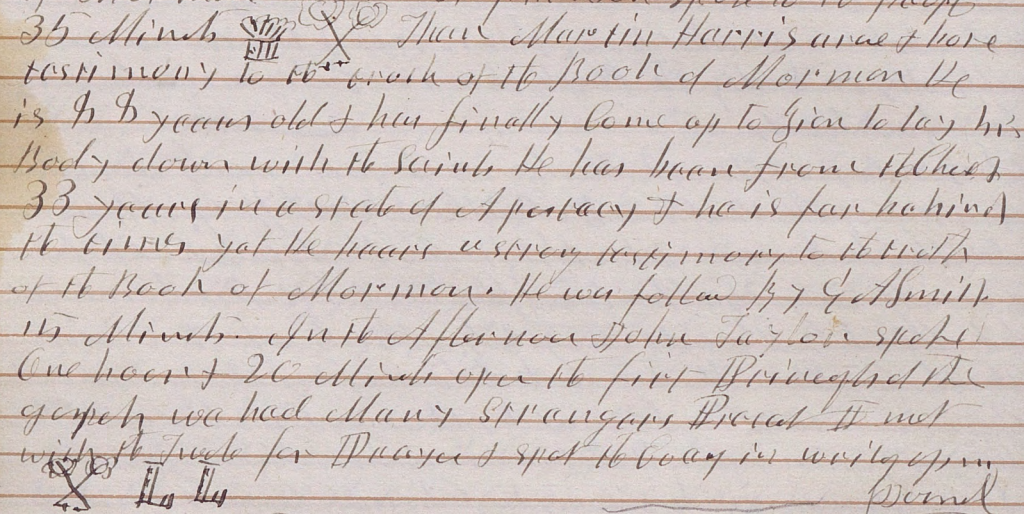 35 Minuts Then Martin Harris arose & bore
testimony to the truth of the Book of Mormon He
is 88 years old & has finally Come up to Zion to lay his
Body down with the Saints He has been from the Church
33 years in a state of Apostacy & he is far behind
the times yet He bears a strong testimony to the truth
of the Book of Mormon. He was followed By G A Smith
15 Minuts. In the Afternoon John Taylor spoke
One hour & 20 Minuts upon the first Principles of the
gospel we had Many Strangers Present I met
with the Twelve for Prayer & spent the in writing
Journal